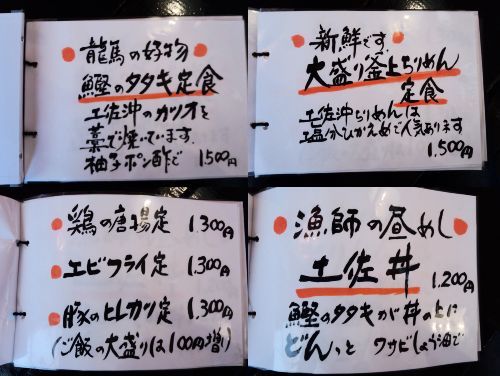 龍馬の好物
鰹のタタキ定食
土佐沖のカツオを
藁で焼いています.
柚子ポン酢で 1500円
新鮮です.
大盛り釜上ちりめん
定食
土佐沖ちりめんは
塩分ひかえめで人気あります
1.500円
鶏の唐揚定 1.300円
エビフライ定 1.300円
豚のヒレカツ定 1.300円
(ご飯の大盛りは100円増し)
漁師の昼めし
土佐丼 1.200円
鰹のタタキが丼の上に
どんっと ワサビしょう油で